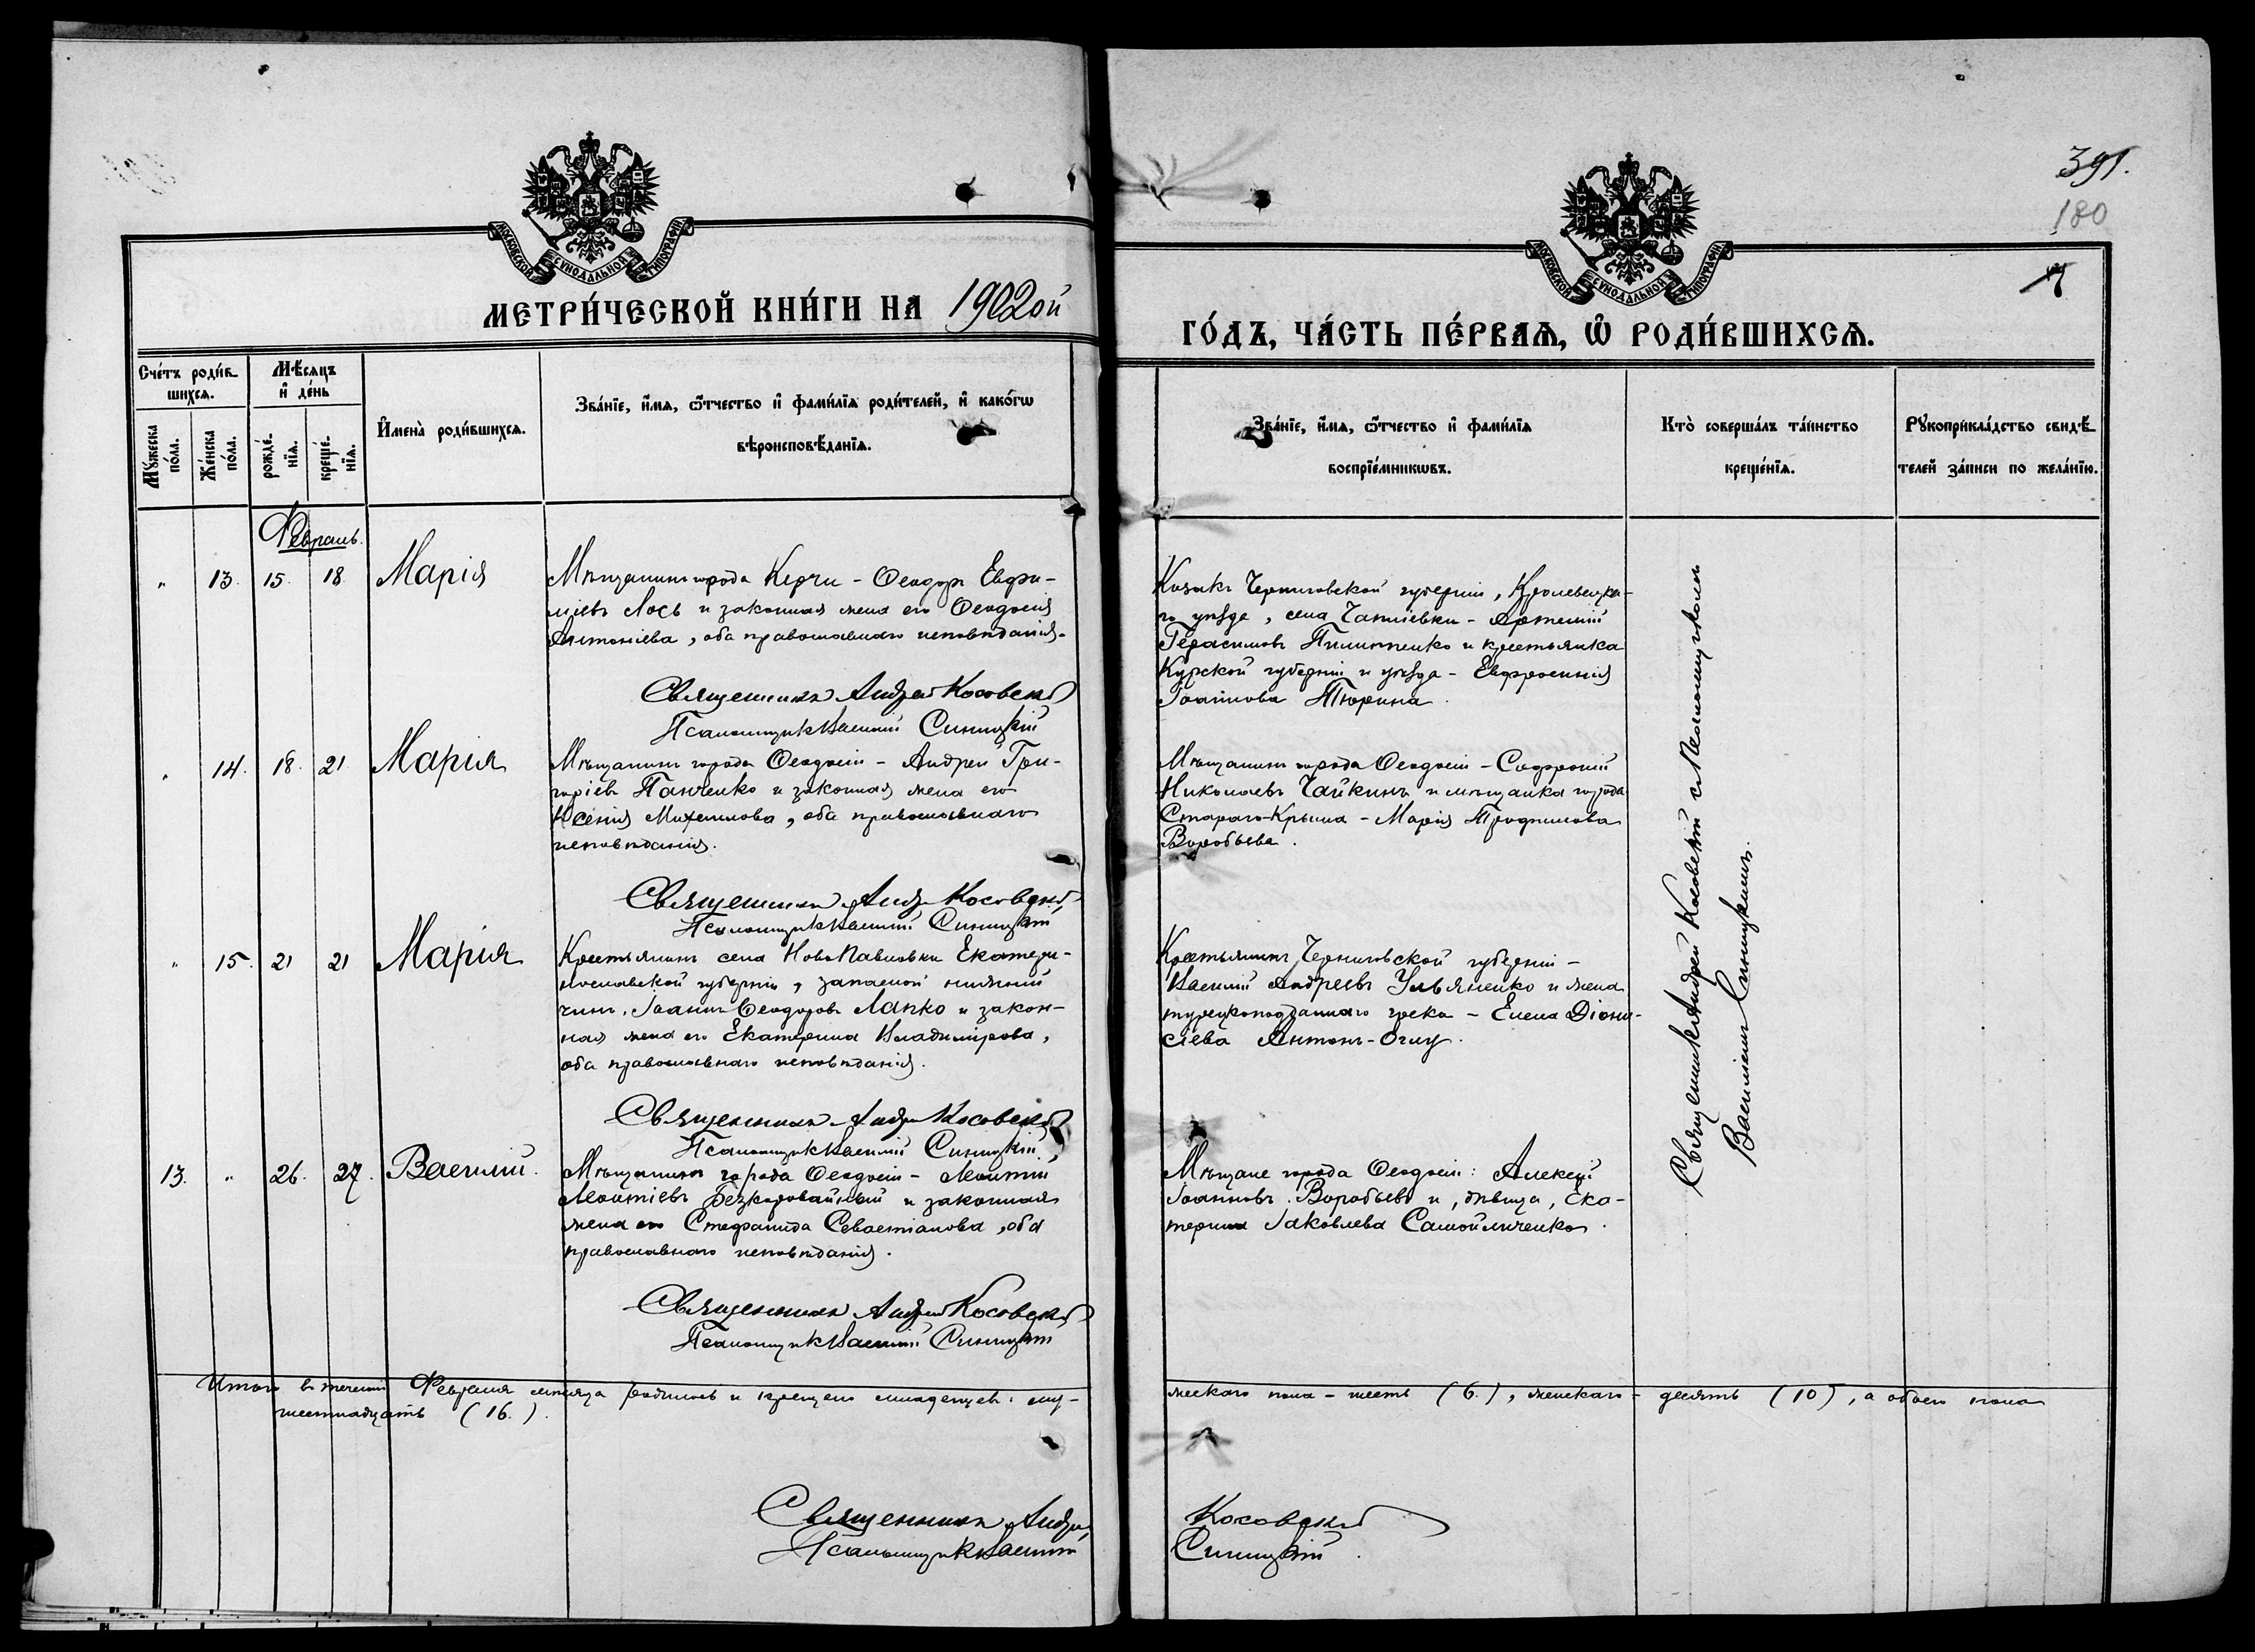 391.
180
МОСКОВСКОЙ СѴНОДАЛЬНОЙ ТИПОГРАФІИ
МОСКОВСКОЙ СѴНОДАЛЬНОЙ ТИПОГРАФІИ
МЕТРИ́ЧЕСКОЙ КНИ́ГИ НА 1902ой
ГО́ДЪ, ЧА́СТЬ ПЕ́РВАѦ, Ѡ҆ РОДИ́ВШИХСѦ.
Сче́тъ роди́в-
шихсѧ.
Мѣ́сѧцъ
и҆ де́нь
Мꙋ́жеска
по́ла.
Же́нска
по́ла.
рожде́-
нїѧ.
креще́-
нїѧ.
И҆мена̀ роди́вшихсѧ.
Зва́нїе, и҆́мѧ, ѻ҆́тчество и҆ фами́лїѧ роди́телей, и҆ како́гѡ
вѣроисповѣ́данїѧ.
Зва́нїе, и҆́мѧ, ѻ҆́тчество и҆ фами́лїѧ
воспрїе́мникѡвъ.
Кто̀ соверша́лъ та́инство
креще́нїѧ.
Рꙋкоприкла́дство свидѣ́-
телей за́писи по жела́нїю.
Февраль.
" 13. 15. 18. Марія
Мѣщанинъ города Керчи - Ѳеодоръ Евфи-
міевъ Лось и законная жена его Ѳеодосія
Антоніева, оба православнаго исповѣданія.
Священникъ Андрей Косовскій
Псаломщикъ Василій Синицкій
Козакъ Черниговской губерніи, Кролевецка-
го уѣзда, села - Артемій
Герасимовъ Пилипенко и крестьянка
Курской губерніи и уѣзда - Евфросинія
Іоаннова Тюрина.
" 14. 18. 21 Марія
Мѣщанинъ города Ѳеодосіи - Андрей Гри-
горіевъ Панченко и законная жена его
Ксенія Михаилова, оба православнаго
исповѣданія.
Священникъ Андрей Косовскій
Псаломщикъ Василій Синицкій
Мѣщанинъ города Ѳеодосіи - Софроній
Николаевъ Чайкинъ и мѣщанка города
Стараго-Крыма - Марія Трофимова
Воробьева.
" 15. 21 21 Марія
Крестьянинъ села Новопавловки Екатери-
нославской губерніи, запасной нижній
чинъ, Іоаннъ Ѳеодоровъ Лапко и закон-
ная жена его Екатерина Владимірова,
оба православнаго исповѣданія.
Священникъ Андрей Косовскій
Псаломщикъ Василій Синицкій
Крестьянинъ Черниговской губерніи -
Василій Андреевъ Ульяненко и жена
турецкоподданнаго грека - Елена Діони-
сіева Антонъ-Оглу.
13. " 26. 27. Василій.
Мѣщанинъ города Ѳеодосіи - Леонтій
Леонтіевъ Безкоровайный и законная
жена его Стефанида Севастіанова, оба
православнаго исповѣданія.
Священникъ Андрей Косовскій
Псаломщикъ Василій Синицкій
Мѣщане города Ѳеодосіи: Алексій
Іоанновъ Воробьевъ и, дѣвица, Ека-
терина Іаковлева Самойличенко.
Священникъ Андрей Косовскій съ Псаломщикомъ
Василіемъ Синицкимъ.
Итого въ теченіи Февраля мѣсяца родилось и крещено младенцевъ: муж-
жескаго пола - шесть (6.), женскаго - десять (10), а обоего пола
шестнадцать (16.).
Священникъ Андрей Косовскій
Псаломщикъ Василій Синицкій.